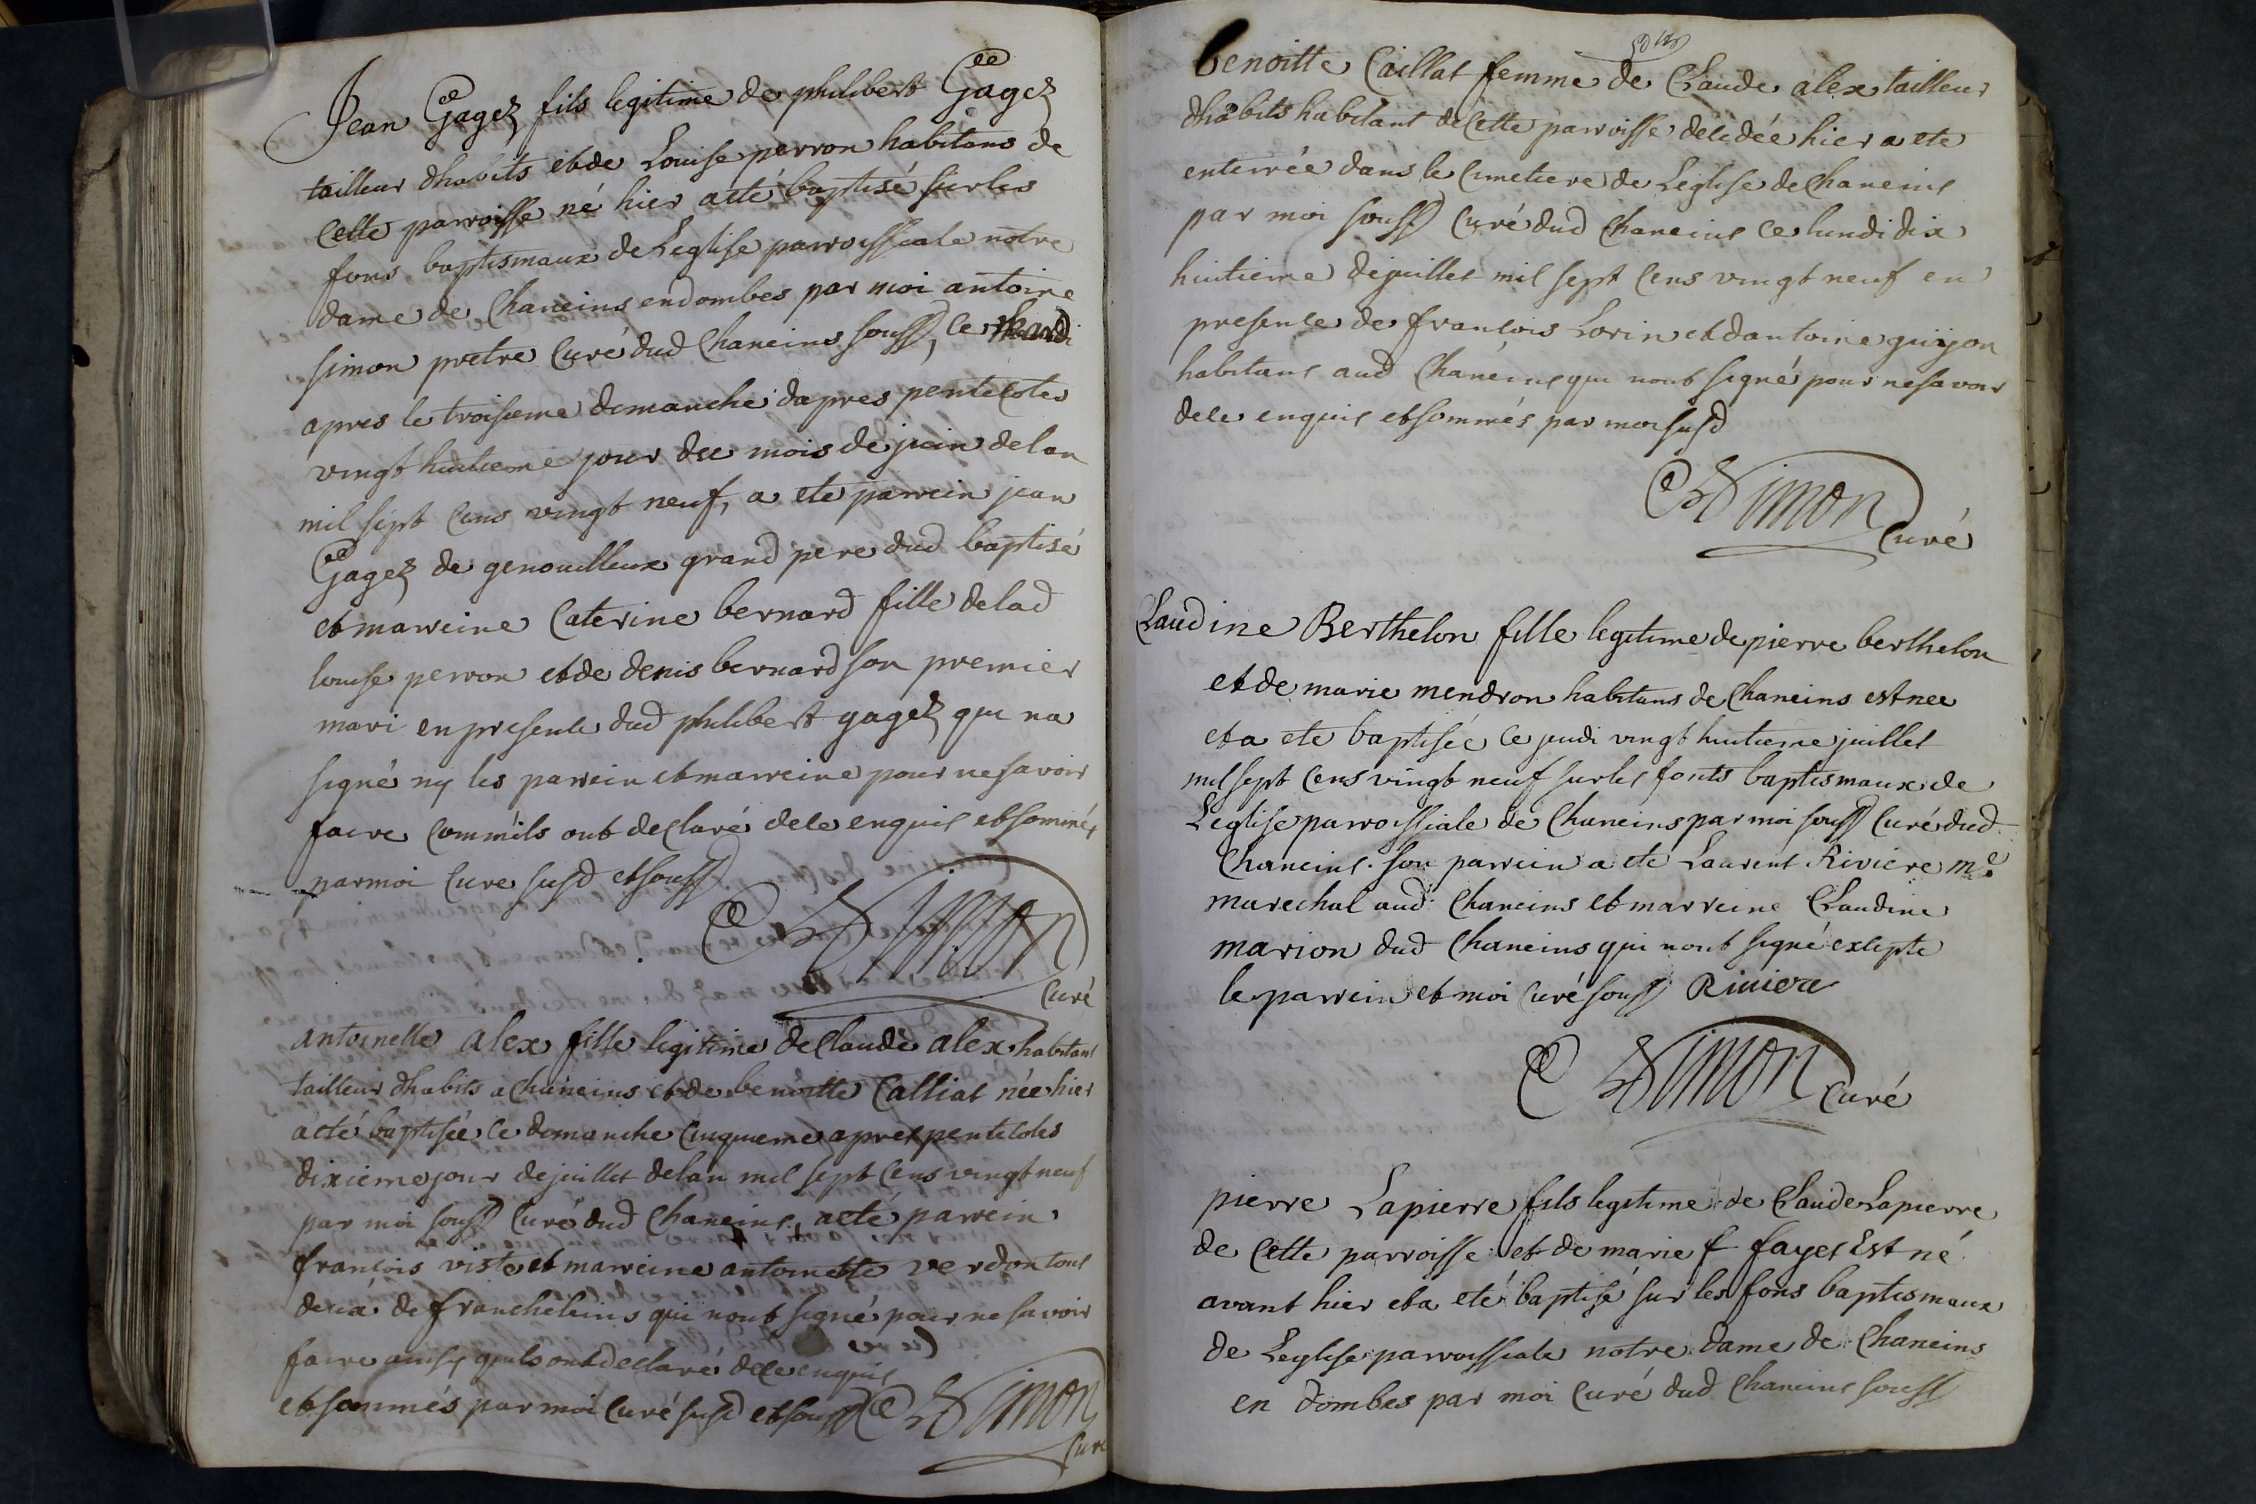 Jean Gagez fils legitime de philibert Gagez
tailleur dhabits et de Louise perron habitans de
cette parroisse né hier a eté baptisé sur les
fons baptismaux de Leglise parroissiale notre
dame de Chaneins en dombes par moi antoine
simon pretre Curé dud Chaneins soussd, ce mardi
apres le troisieme dimanche dapres pentecotes
vingt huitieme jour du mois de juin de lan
mil sept cens vingt neuf, a ete parrein jean
Gagez de genouilleux grand pere dud baptisé
et marreine Caterine bernard fille de lad
louise perron et de denis bernard son premier
mari en presence dud philibert gagez qui na
signé ny les parrein et marreine pour ne savoir
faire comm'ils ont declaré de ce enquis et sommés
par moi Curé susd et soussd
Simon
Curé
antoinette alex fille legitime de Claude alex habitant
tailleur dhabits a Chaneins et de benoitte Calliat née hier
a eté baptisée ce dimanche cinquieme apres pentecotes
dixieme jour de juillet de lan mil sept cens vingt neuf
par moi soussd Curé dud Chaneins, a eté parrein
francois viste et marreine antoinette verdon tous
deux de francheleins qui nont signé pour ne savoir
faire ainsy quils ont declaré de ce enquis
et sommés par moi Curé susd et soussd Simon
Curé
benoitte Caillat femme de Claude alex tailleur
dhabits habitant de cette parroisse decedée hier a ete
enterrée dans le cimetiere de Leglise de Chaneins
par moi soussd Curé dud Chaneins ce lundi dix
huitieme de juillet mil sept cens vingt neuf en
presence de francois Lorin et dantoine guyon
habitans aud Chaneins qui nont signé pour ne savoir
de ce enquis et sommés par moi susd
Simon
Curé
Claudine Berthelon fille legitime de pierre berthelon
et de marie mendron habitans de Chaneins est nee
et a ete baptisée ce jeudi vingt huitieme juillet
mil sept cens vingt neuf sur les fonts baptismaux de
Leglise parroissiale de Chaneins par moi soussd Curé dud
Chaneins. son parrein a ete Laurent Riviere me
marechal aud Chaneins et marreine Claudine
marion dud Chaneins qui nont signé excepte
le parrein et moi Curé soussd Riviere
Simon Curé
pierre Lapierre fils legitime de Claude Lapierre
de cette parroisse et de marie f fayet Est né
avant hier et a eté baptisé sur les fons baptismaux
de Leglise parroissiale notre dame de Chaneins
en dombes par moi Curé dud Chaneins soussd